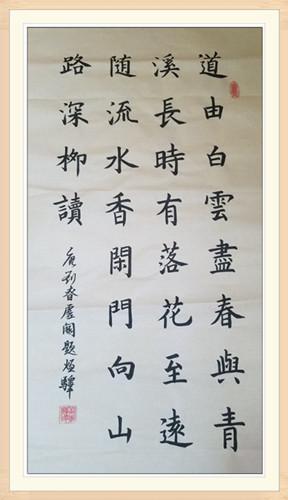 道由白雲盡春與青
溪長時有落花至遠
随流水香閑門向山
路深柳讀
唐刘昚虛闕題